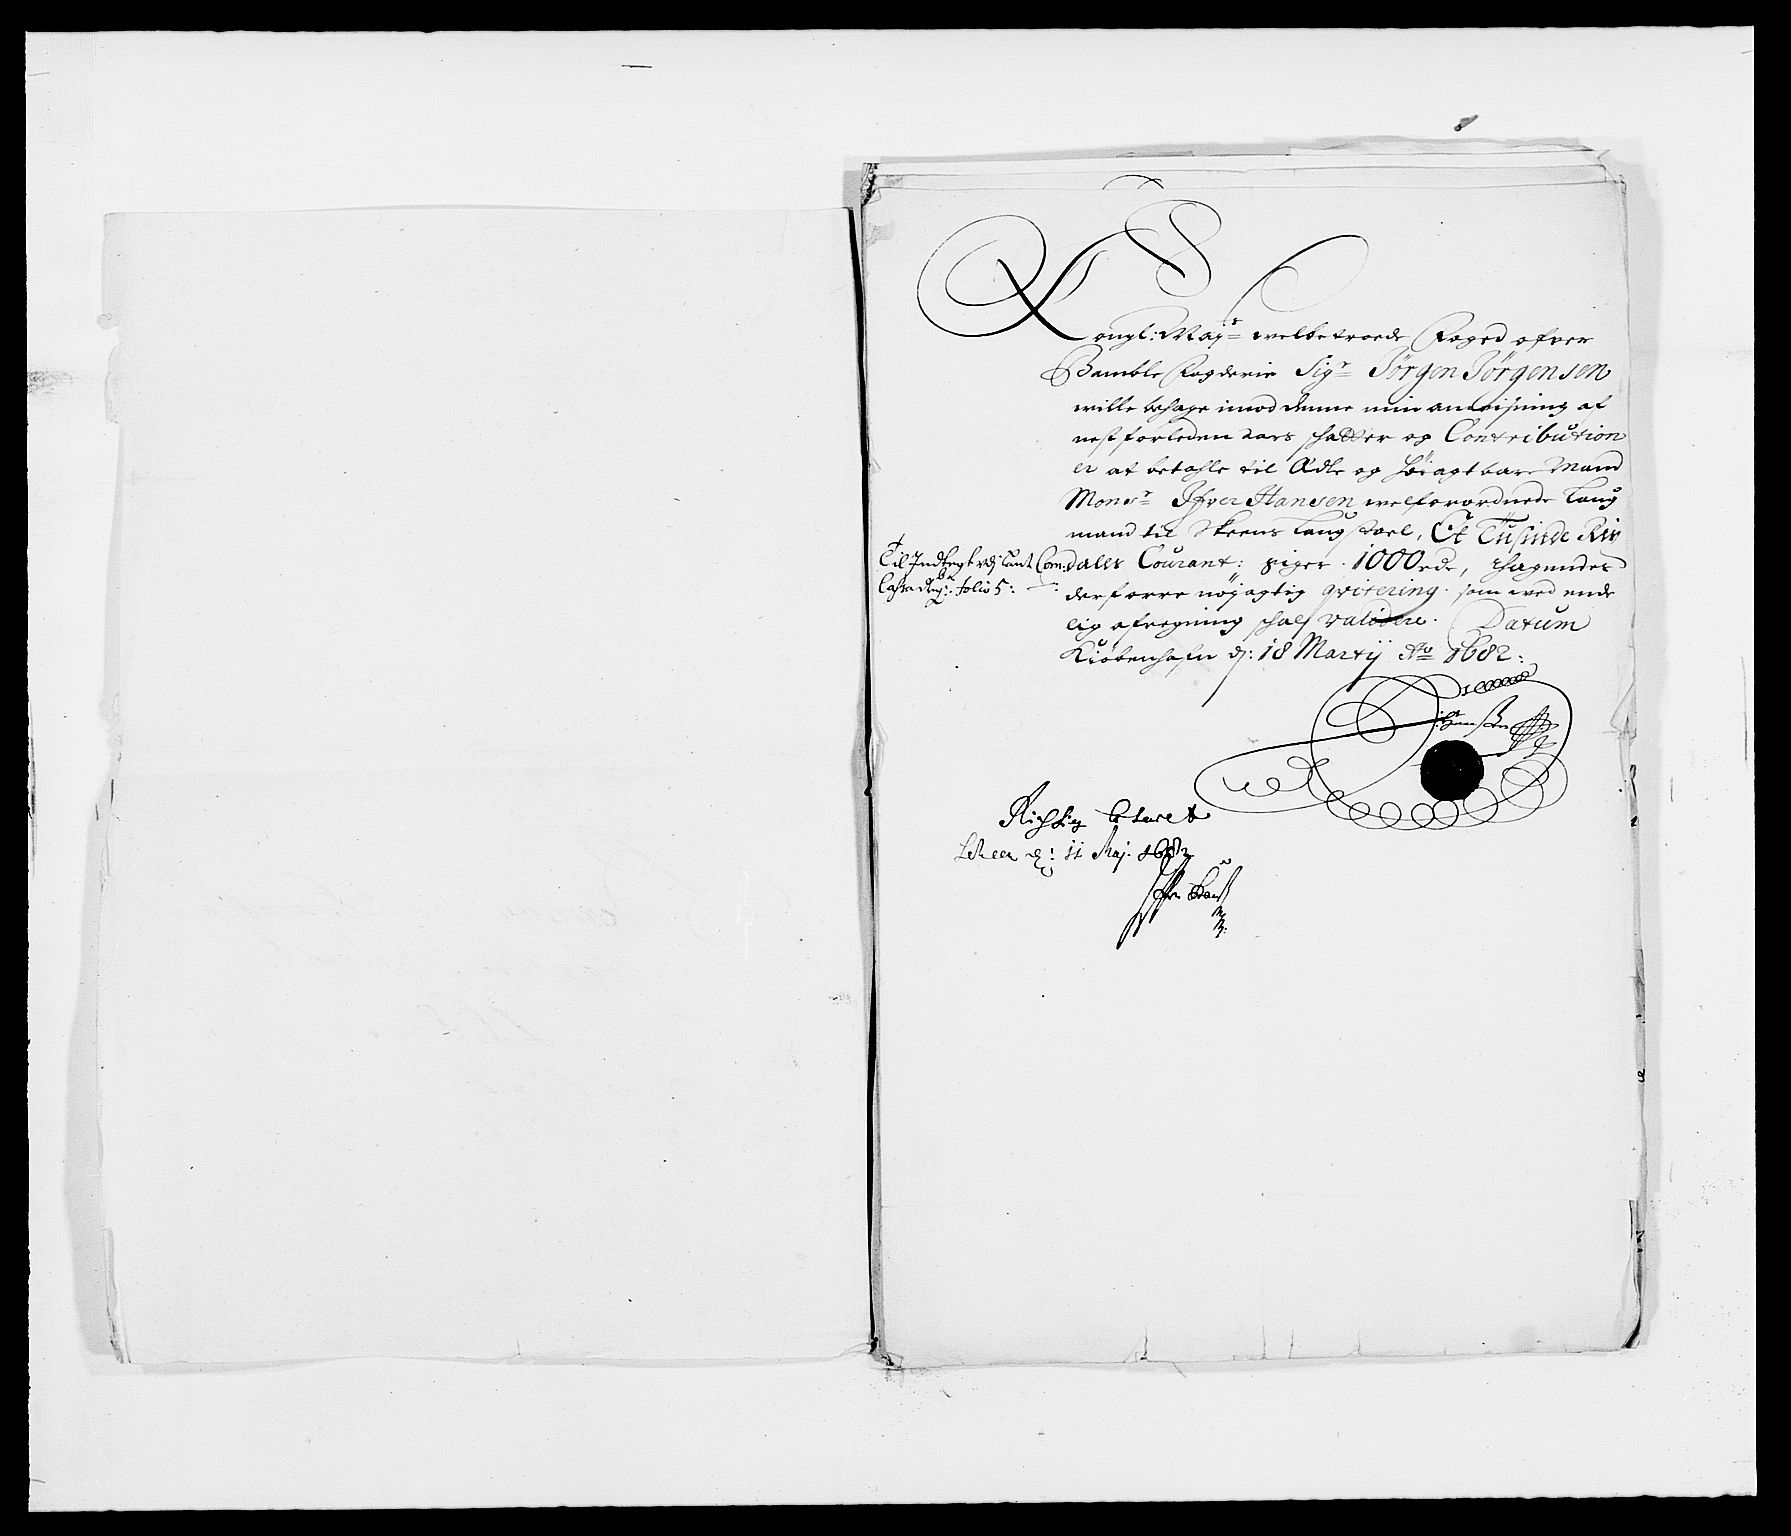 Kongl: May:ˢ welbetroede Foged ofver
Bamble Fogderie Sigʳ Jørgen Jørgensen
wille behage imod denne min anviisning af
nest forleden aars schatter og Contribution
er at betahle til Ædle og Höiagtbare Mand
Monsʳ Ifver Hansen welforordnede Laug
mand til Skeens Laugstoel, Et Tusinde Rix
daler Courant: siger 1000 rdr, Tagendes
derforre nöyagtig qvitering som wed ende
lig afregning schal validere. Datum
Kiöbenhafn d: 18 Martij Aͦ 1682:
Til Indtegt udj Land Com:
Cassa folio 5:
Richtig betalt
Scheen d: 11 Maj. 1682
Iffuer Hanss